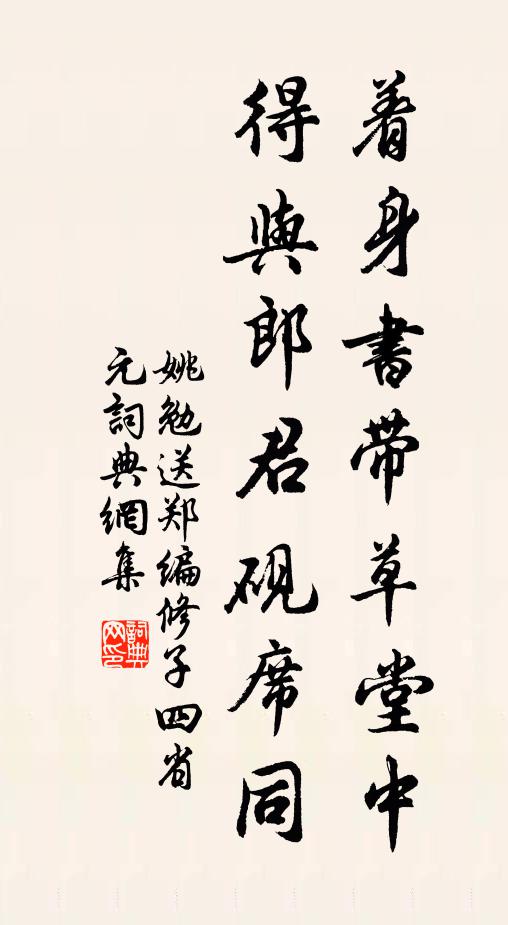 着身書带草堂中
得與郎君硯席同
姚勉送郑编修子四省
元詞典網集
詞典网印